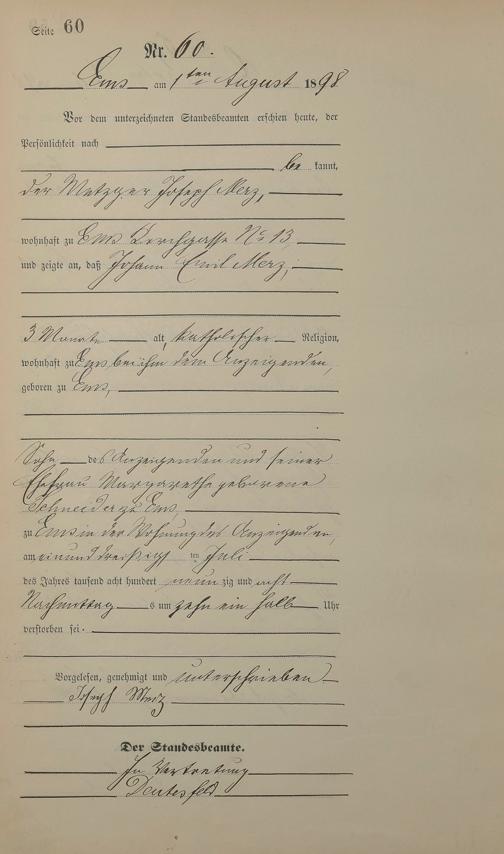 Seite 60
Nr. 60.
Ems am 1ten August 1898
Vor dem unterzeichneten Standesbeamten erschien heute, der
Persönlichkeit nach
be kannt,
der Metzger Joseph Merz,
wohnhaft zu Ems Kirchgasse No 13,
und zeigte an, daß Johann Emil Merz,
3 Monate alt, katholischer Religion,
wohnhaft zu Ems bei ihm dem Anzeigenden,
geboren zu Ems,
Sohn des Anzeigenden und seiner
Ehefrau Margarethe geborene
Schneider zu Ems,
zu Ems in der Wohnung des Anzeigenden,
am einunddreißigsten Juli
des Jahres tausend acht hundert neunzig und acht
Nachmittags um zehn ein halb Uhr
verstorben sei.
Vorgelesen, genehmigt und unterschrieben
Joseph Merz
Der Standesbeamte.
In Vertretung